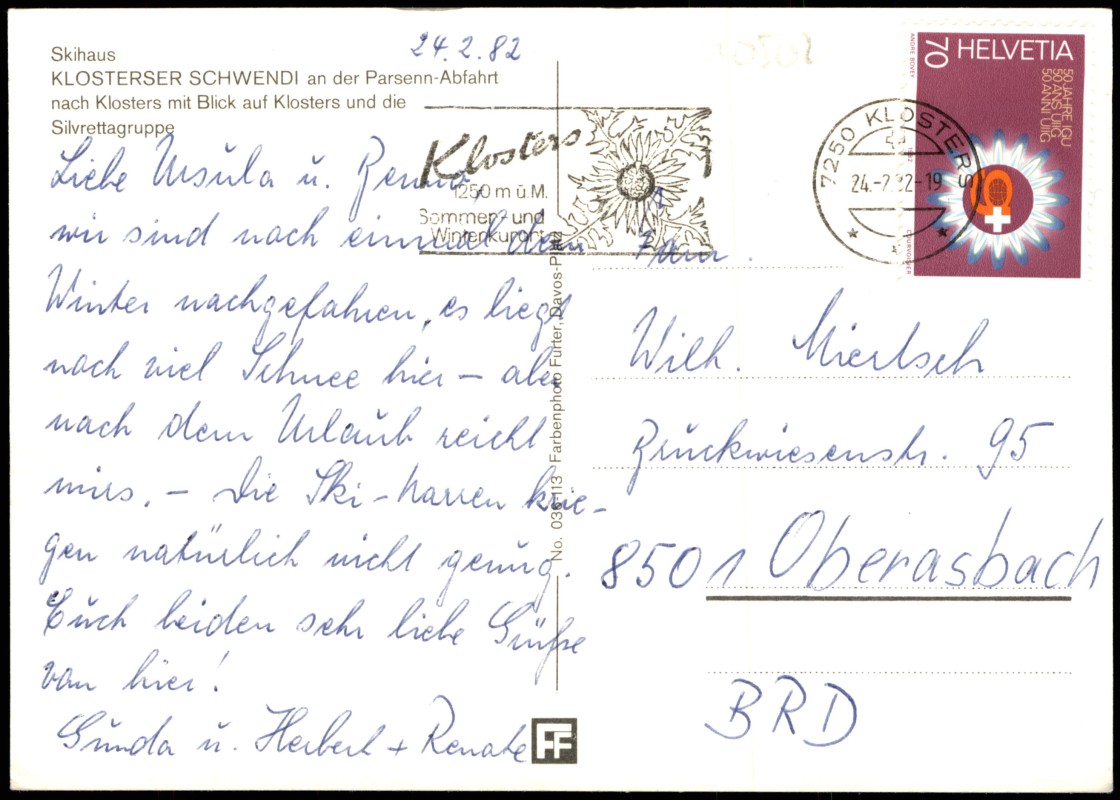 Skihaus
KLOSTERSER SCHWENDI an der Parsenn-Abfahrt
nach Klosters mit Blick auf Klosters und die
Silvrettagruppe
24.2.82
Liebe Ursula u.
wir sind noch einmal dem
Winter nachgefahren, es liegt
noch viel Schnee hier – aber
nach dem Urlaub reicht
mirs. – Die Ski-Narren krie-
gen natürlich nicht genug.
Euch beiden sehr liebe Grüße
von hier!
Gunda u. Herbert + Renate
FF
No. 036-113 Farbenphoto Furter, Davos-Platz
Klosters
1250 m ü.M.
Sommer- und
Winterkurort
7250 KLOSTERS
24.-2.82-19
70 HELVETIA
50 JAHRE IGU
50 ANS UIIG
50 ANNI UIIG
ANDRE BOVEY
COURVOISIER
Fam.
Wilh. Miertsch
Bruckwiesenstr. 95
8501 Oberasbach
BRD